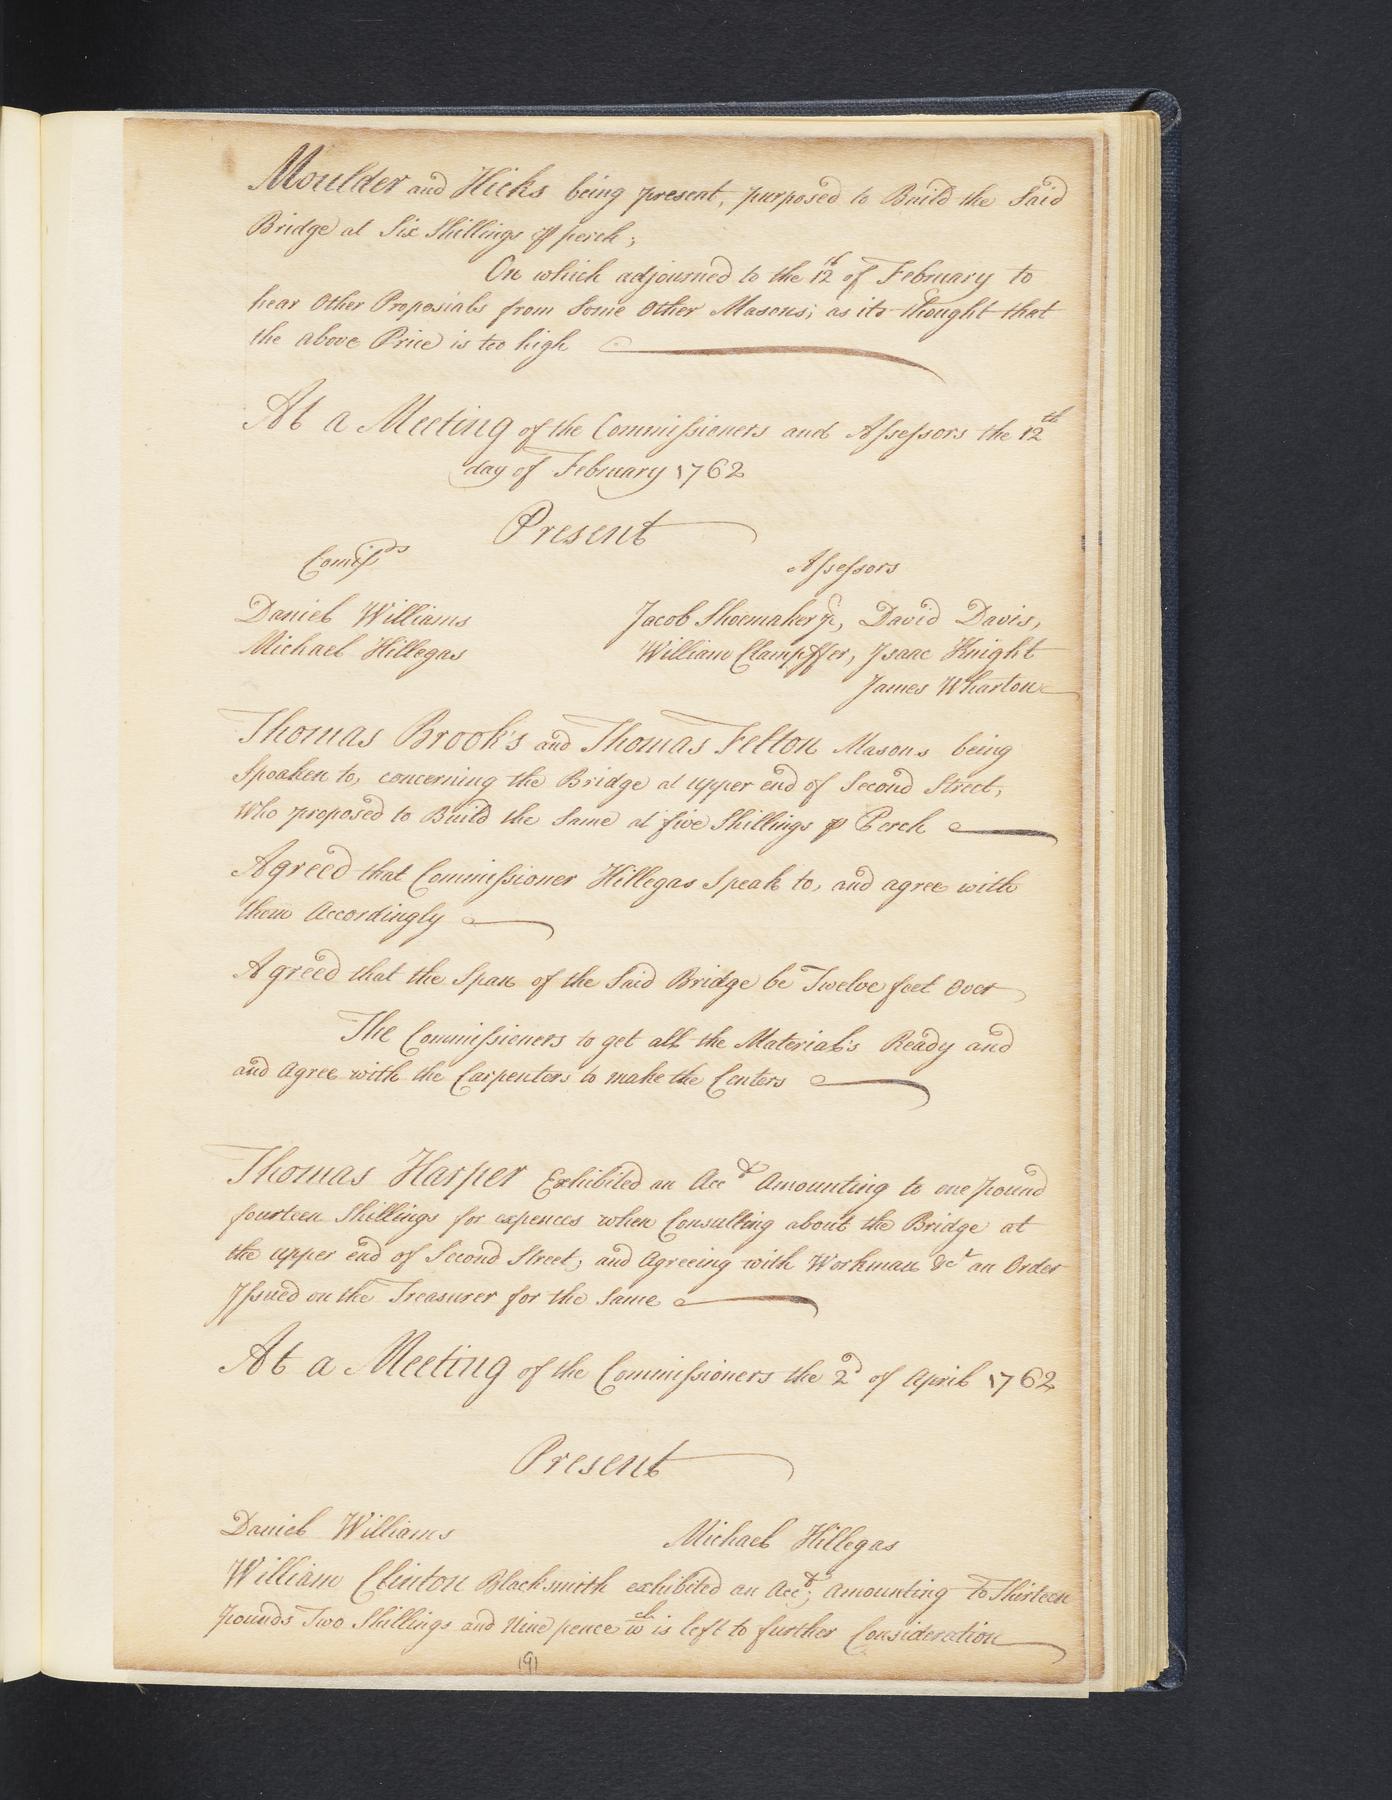 Moulder and Hicks being present, purposed to Build the Said
Bridge at Six Shillings ⅌ perch;
On which adjourned to the 12th of February to
hear Other Proposials from Some Other Masons; as its thought that
the above Price is too high
At a Meeting of the Commissioners and Assessors the 12th
day of February 1762
Present
Comissrs
Assessors
Daniel Williams
Jacob Shoemaker Jr, David Davis,
Michael Hillegas
William Clampffer, Isaac Knight
James Wharton
Thomas Brook's and Thomas Felton Masons being
Spoaken to, concerning the Bridge at upper end of Second Street,
Who proposed to Build the Same at five Shillings ⅌ Perch
Agreed that Commissioner Hillegas Speak to, and agree with
them Accordingly
Agreed that the Span of the Said Bridge be Twelve feet Over
The Commissioners to get all the Material's Ready and
and Agree with the Carpenters to make the Centers
Thomas Harper Exhibited an Acct Amounting to one pound
fourteen Shillings for expences when Consulting about the Bridge at
the upper end of Second Street, and Agreeing with Workman &c an Order
Issued on the Treasurer for the Same
At a Meeting of the Commissioners the 2d of April 1762
Present
Daniel Williams
Michael Hillegas
William Clinton Blacksmith exhibited an Acct; amounting to Thirteen
pounds Two Shillings and Nine pence wch is left to further Consideration
(9)